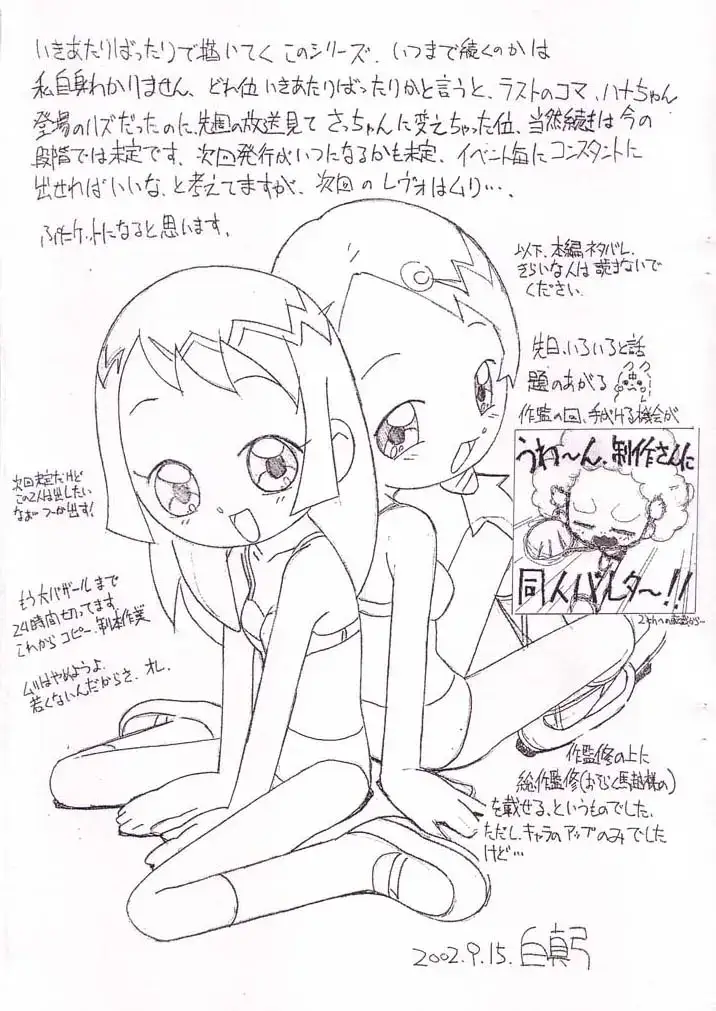 いきあたりばったりで描いてく このシリーズ、いつまで続くのかは
私自身わかりません、どれ位いきあたりばったりかと言うと、ラストのコマ、ハナちゃん
登場のハズだったのに、先週の放送見て さっちゃんに変えちゃった位、当然続きは今の
段階では未定です、次回発行がいつになるかも未定、イベント毎にコンスタントに
出せればいいな、と考えてますが、次回のレヴォはムリ…、
ぷにケットになると思います、
以下、本編ネタバレ、
きらいな人は読まないで
ください、
先日、いろいろと話
題のあがる
作監の回、手がける機会が
うわ〜ん、制作さんに
同人バレタ〜!!
次回未定だけど
この2人は出したい
なぁ つーか出す!
もう大バザールまで
24時間切ってます、
これから コピー、製本作業
ムリはやめようよ、
若くないんだからさ、オレ、
作監修の上に
総作監修(おそらく馬越様の)
を載せる、というものでした、
ただし、キャラのアップのみでした
けど…
2002.9.15.